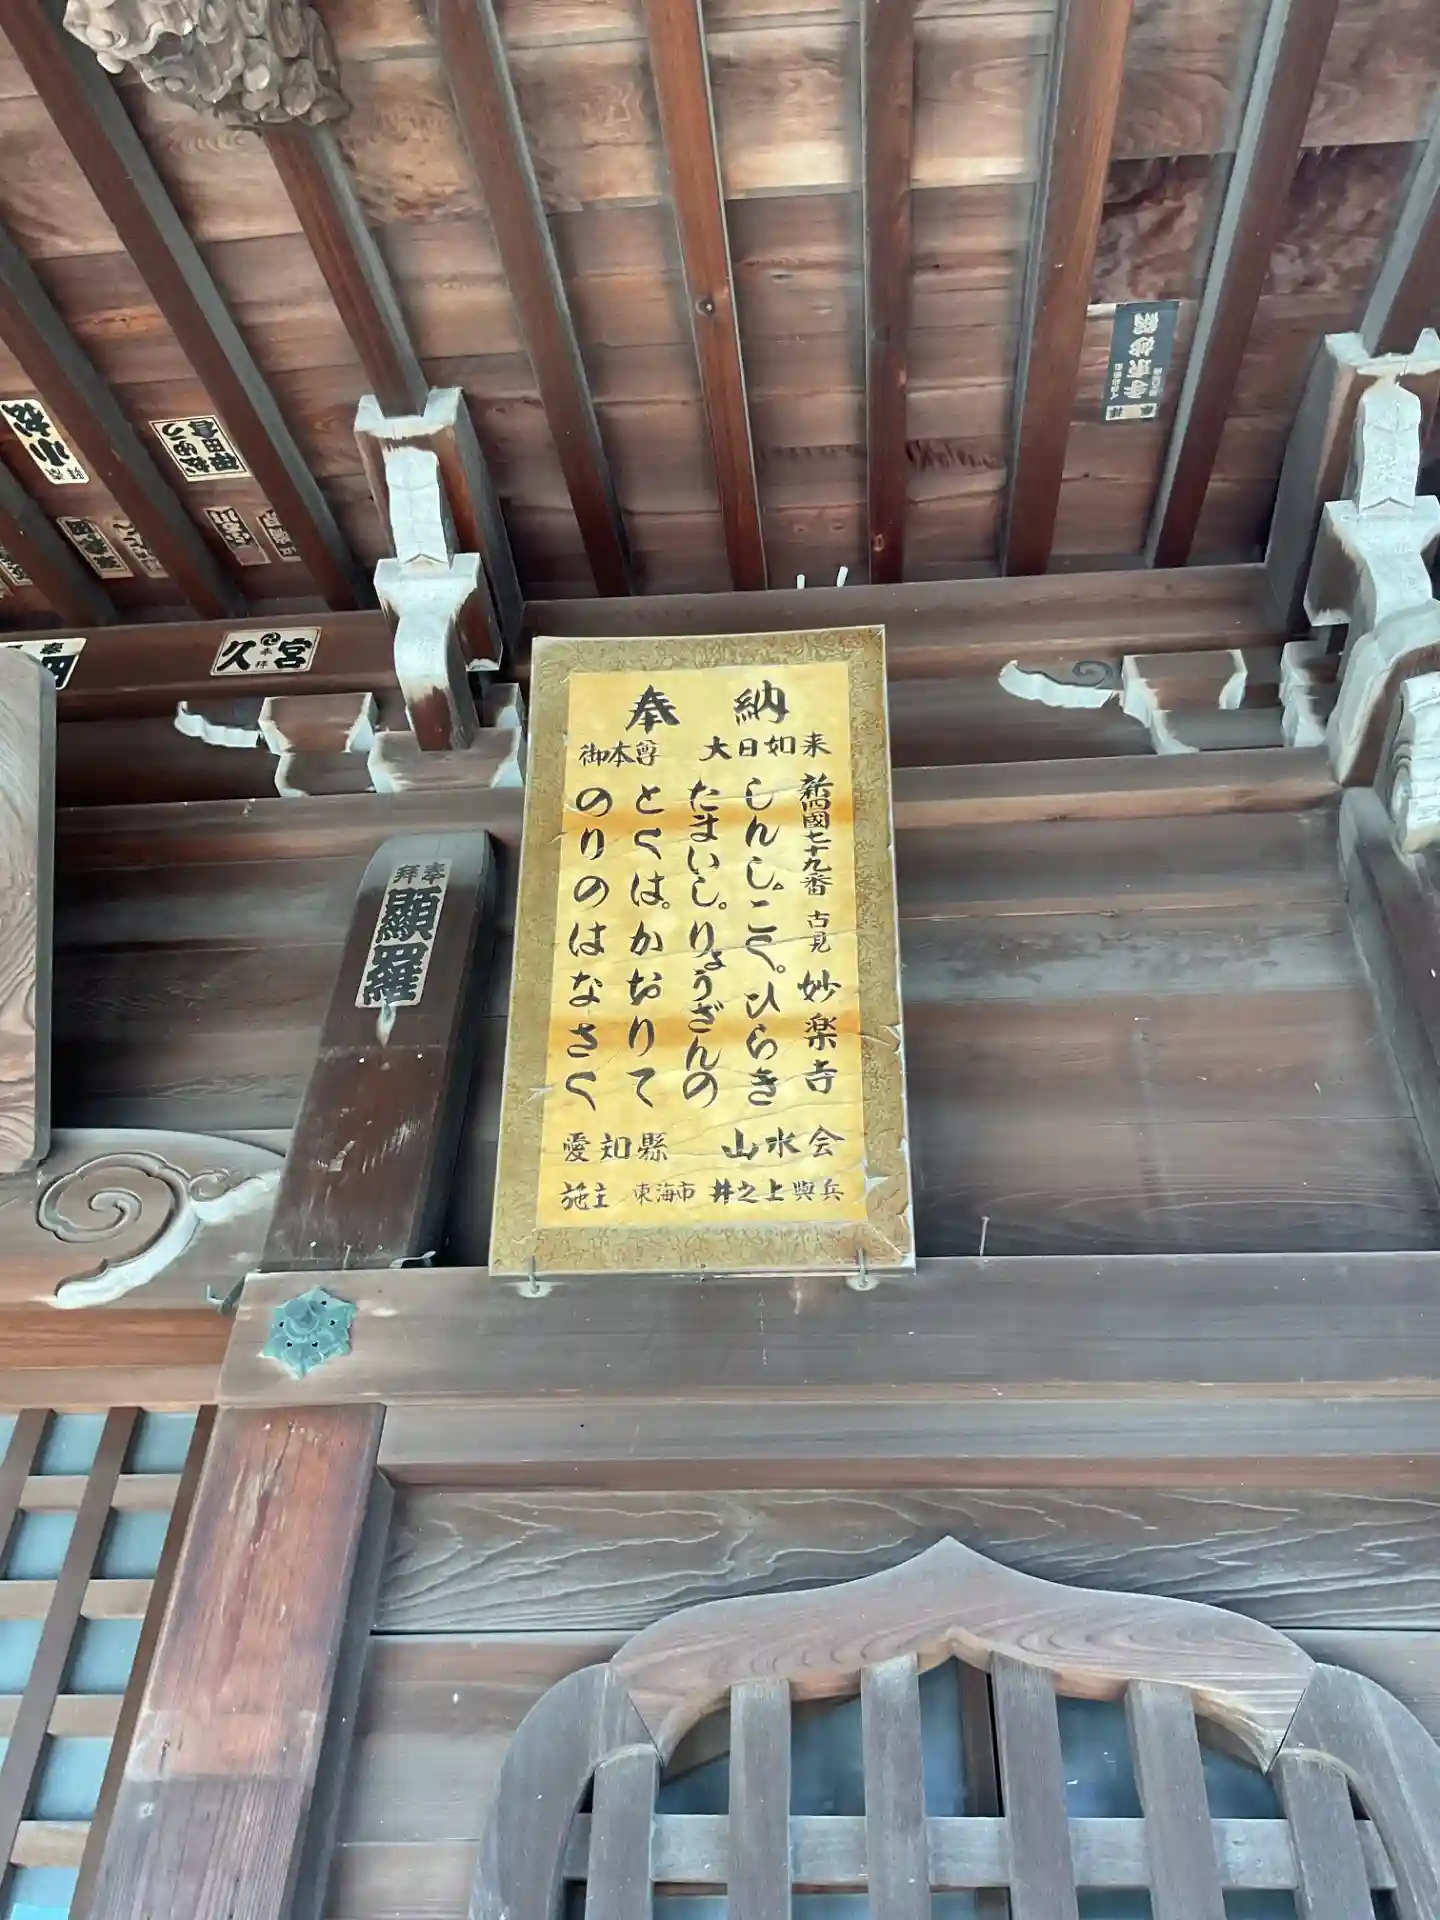 奉納
御本尊 大日如来
新四國七十九番 古見 妙楽寺
しんし。こく。ひらき
たまいし。りょうざんの
とくは。かおりて
のりのはなさく
愛知縣 山水会
施主 東海市 井之上與兵
奉拝
顯羅
久宮
奉拝
小松
伊田倉